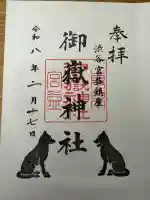 奉拝
渋谷宮益鎮座
御嶽神社
令和八年二月十七日